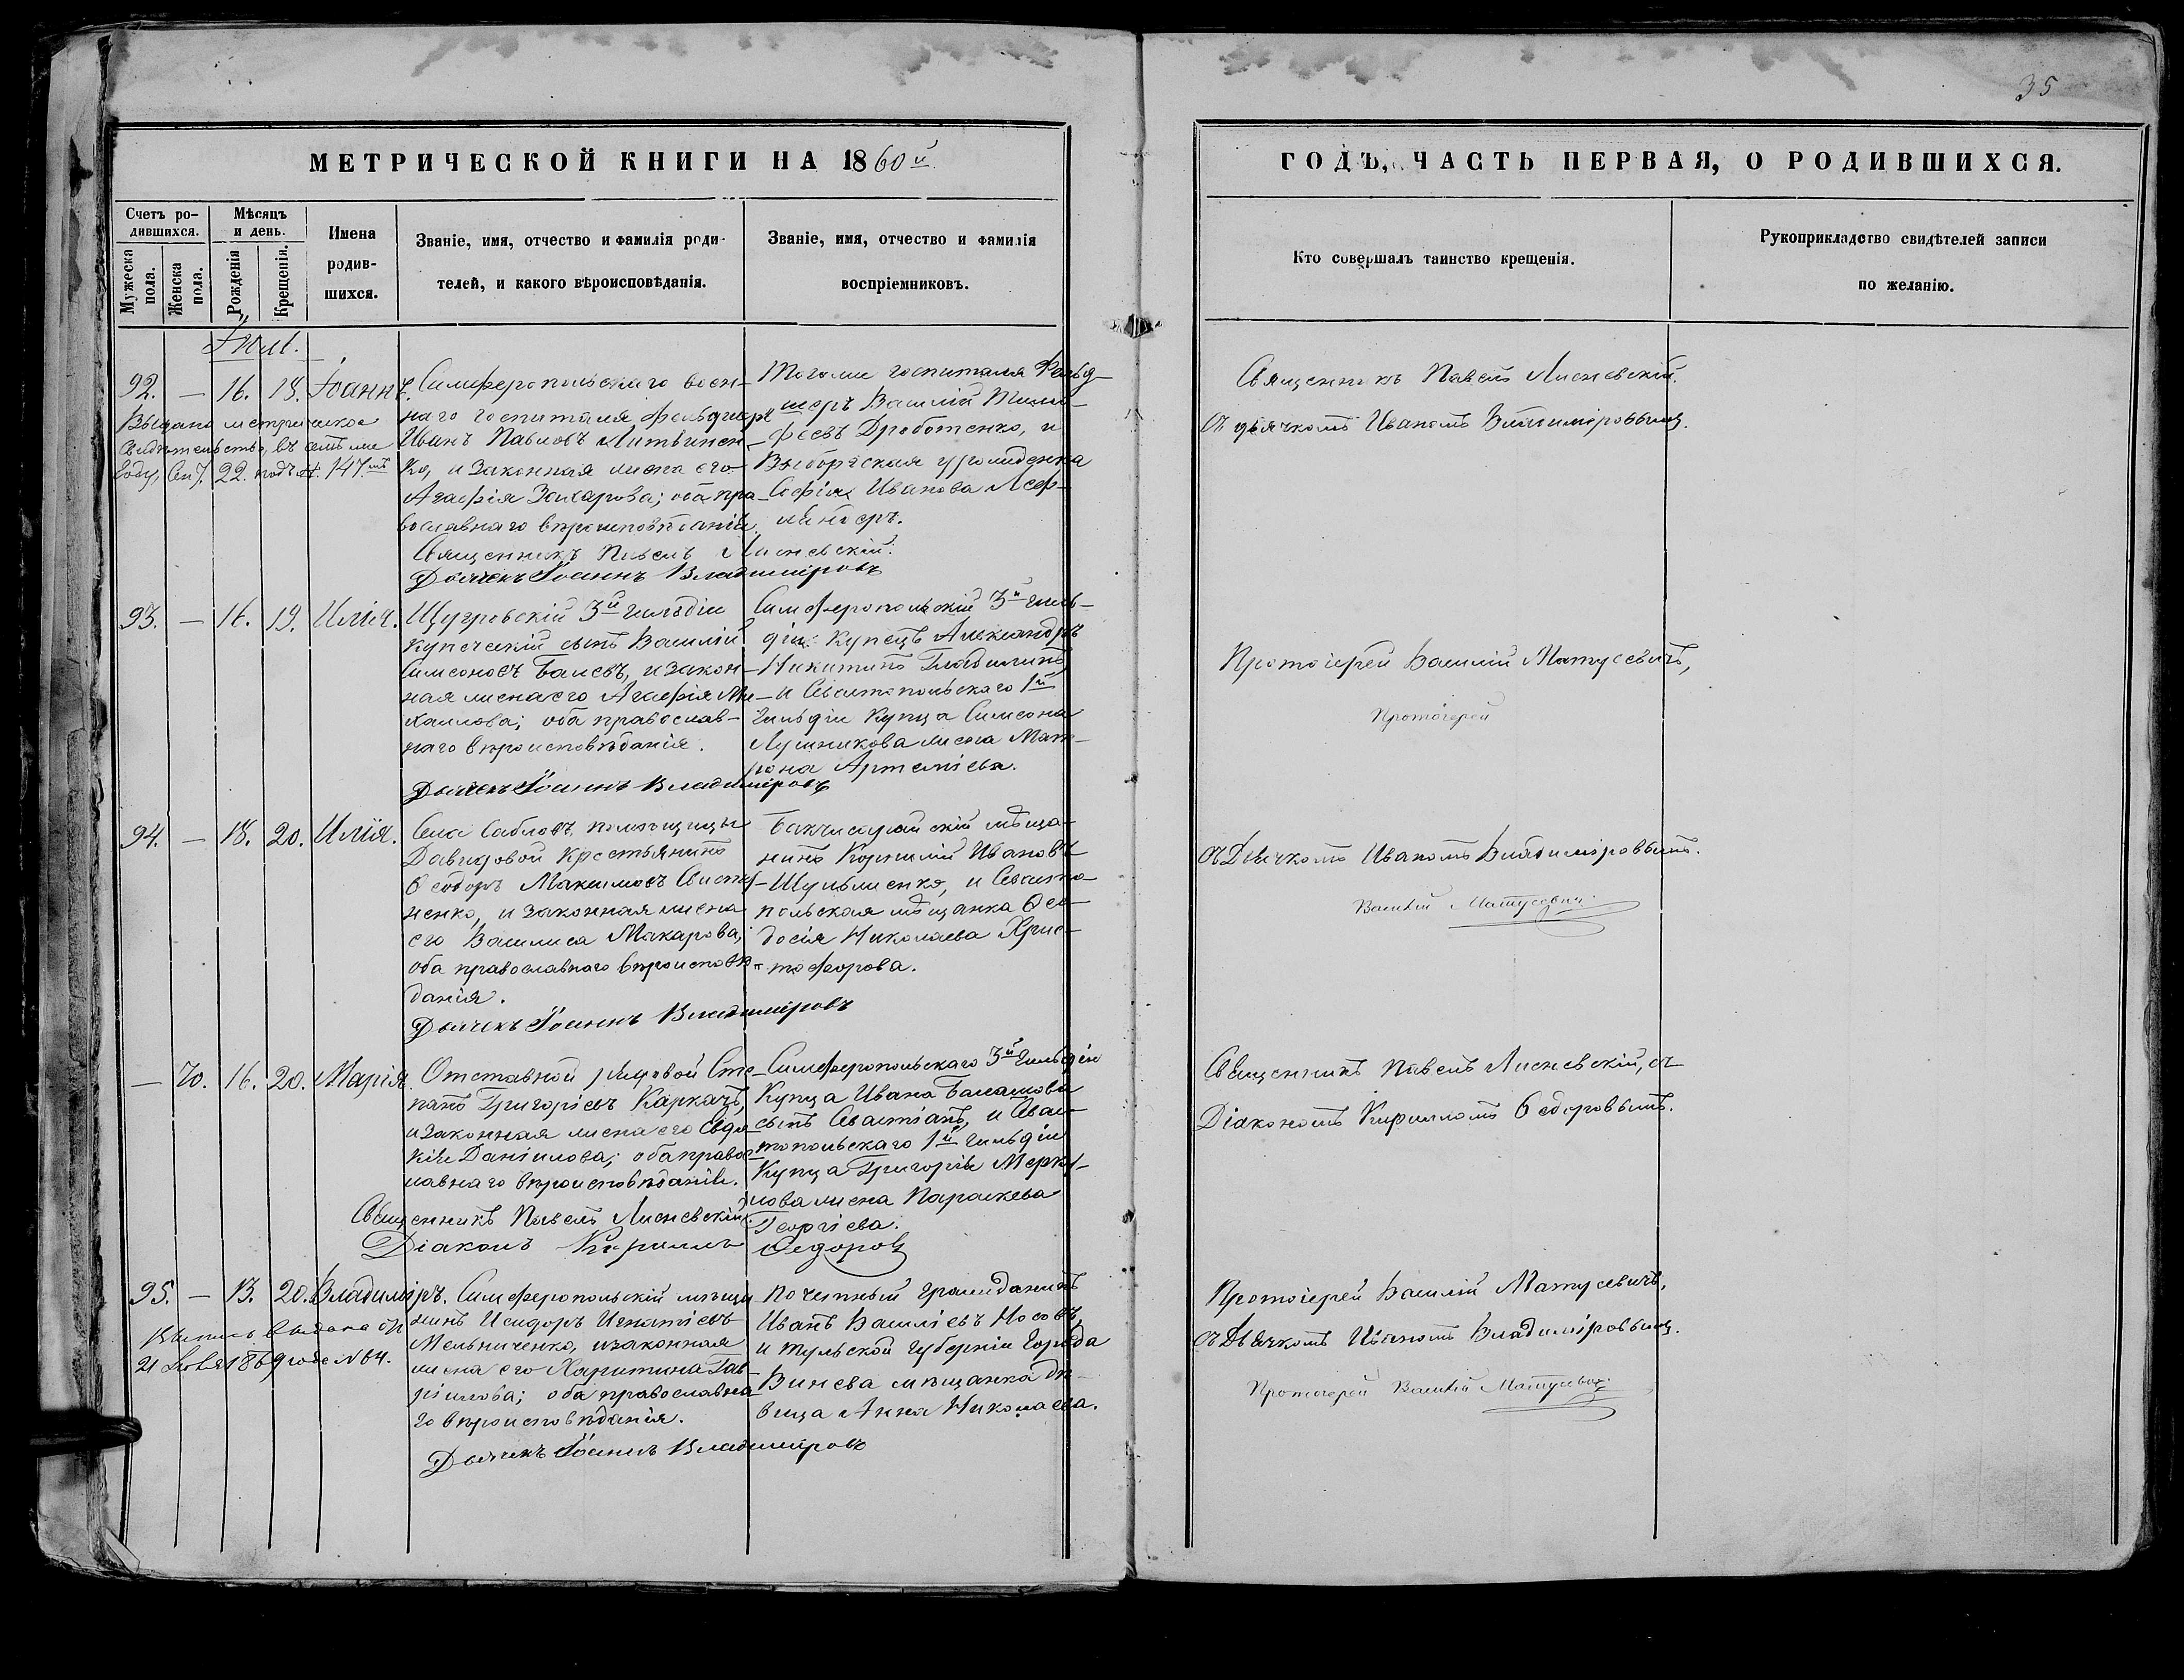 35
МЕТРИЧЕСКОЙ КНИГИ НА 1860й
ГОДЪ, ЧАСТЬ ПЕРВАЯ, О РОДИВШИХСЯ.
Счетъ ро-
дившихся.
Мужеска
пола.
Женска
пола.
Мѣсяцъ
и день.
Рожденія
Крещенія.
Имена
родив-
шихся.
Званіе, имя, отчество и фамилія роди-
телей, и какого вѣроисповѣданія.
Званіе, имя, отчество и фамилія
воспріемниковъ.
Кто совершалъ таинство крещенія.
Рукоприкладство свидѣтелей записи
по желанію.
92. — 16. 18. Іоаннъ.
Выдано метрическое
свидѣтельство, въ
году, Сен. 22. подъ № 147.мъ
Симферопольскаго воен-
наго госпиталя фельдшеръ
Иванъ Павловъ Литвинен-
ко, и законная жена его
Агафія Захарова; оба пра-
вославнаго вѣроисповѣданія.
Священникъ Павелъ Лисневскій.
Дьячекъ Іоаннъ Владиміровъ
Тогоже госпиталя Фельд-
шеръ Василій Тимо-
феевъ Дроботенко, и
Выборгская уроженка
Софія Иванова
Священникъ Павелъ Лисневскій.
съ дьячкомъ Иваномъ Владиміровымъ.
93. — 16. 19. Илія.
Щугровскій 3й гильдіи
купеческій сынъ Василій
Симеоновъ Баевъ, и закон-
ная жена его Агафія Ми-
хаилова; оба православ-
наго вѣроисповѣданія.
Дьячекъ Іоаннъ Владиміровъ
Симферопольскій 3й гиль-
діи Купецъ Александръ
Никитинъ
и Севастопольскаго 1й
гильдіи Купца Симеона
Лушникова жена Мат-
рона Артеміева.
Протоіерей Василій Матусевичъ,
Протоіерей
94. — 18. 20. Илія.
Села Сабловъ, помѣщицы
Давыдовой крестьянинъ
Ѳеодоръ Максимовъ
ненко, и законная жена
его Василиса Макарова;
оба православнаго вѣроисповѣ-
данія.
Дьячекъ Іоаннъ Владиміровъ
Бахчисарайскій мѣща-
нинъ Корнилій Ивановъ
Шульженко, и Севасто-
польская мѣщанка Ѳео-
досія Николаева Хрис-
тофорова.
съ Дьячкомъ Иваномъ Владиміровымъ.
Василій Матусевичъ
— 70. 16. 20. Марія.
Отставной рядовой Сте-
панъ Григоріевъ Каркачъ,
и законная жена его Евдо-
кія Даніилова; оба правос-
лавнаго вѣроисповѣданія.
Священникъ Павелъ Лисневскій.
Діаконъ Кириллъ Ѳедоровъ
Симферопольскаго 3й Гильдіи
Купца Ивана Балашова
сынъ Севастіанъ, и Севас-
топольскаго 1й гильдіи
Купца Григорія Мерку-
лова жена Параскева
Георгіева.
Священникъ Павелъ Лисневскій, съ
Діакономъ Кирилломъ Ѳедоровымъ.
95. — 13. 20. Владиміръ.
выдана
21 1869 года № 64.
Симферопольскій мѣща-
нинъ Исидоръ Игнатіевъ
Мельниченко, и законная
жена его Харитина Гав-
ріилова; оба православна-
го вѣроисповѣданія.
Дьячекъ Іоаннъ Владиміровъ
Почетный гражданинъ
Иванъ Василіевъ Носовъ,
и Тульской губерніи города
Винева мѣщанка дѣ-
вица Анна Николаева.
Протоіерей Василій Матусевичъ,
съ Дьячкомъ Иваномъ Владиміровымъ.
Протоіерей Василій Матусевичъ